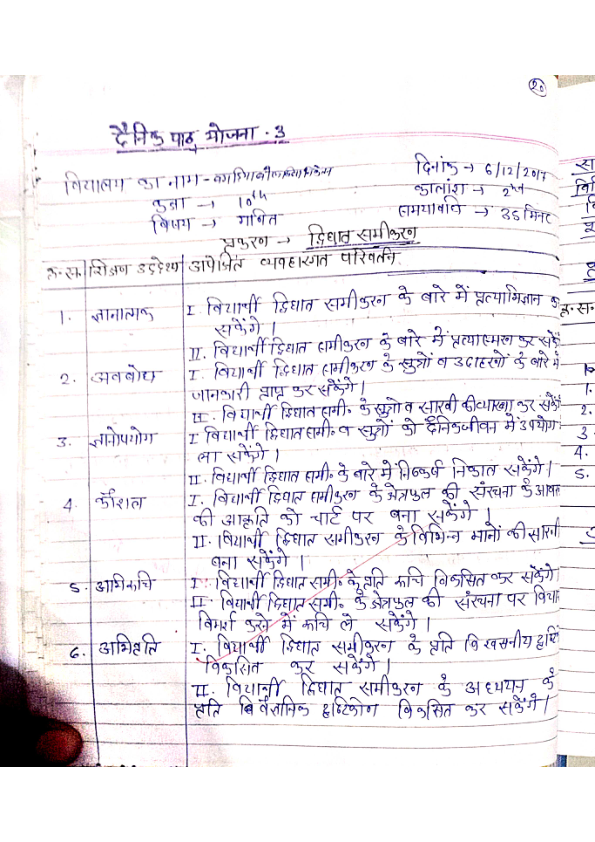 20
दैनिक पाठ योजना - 3
विद्यालय का नाम -
दिनांक → 6/12/2017
कक्षा → 10th
कालांश → 2nd
विषय → गणित
समयावधि → 35 मिनट
प्रकरण → द्विघात समीकरण
क्र.सं. शिक्षण उद्देश्य अपेक्षित व्यवहारगत परिवर्तन
1. ज्ञानात्मक I. विद्यार्थी द्विघात समीकरण के बारे में प्रत्याभिज्ञान क
सकेंगे।
II. विद्यार्थी द्विघात समीकरण के बारे में प्रत्यास्मरण कर सकें
2. अवबोध I. विद्यार्थी द्विघात समीकरण के सूत्रों व उदाहरणों के बारे में
जानकारी प्राप्त कर सकेंगे।
II. विद्यार्थी द्विघात समी॰ के सूत्रो व सारणी की व्याख्या कर सकेंगे
3. ज्ञानोपयोग I विद्यार्थी द्विघात समी॰ व सूत्रों को दैनिक जीवन में उपयोग
ला सकेंगे।
II. विद्यार्थी द्विघात समी॰ के बारे में निष्कर्ष निकाल सकेंगे।
4. कौशल I. विद्यार्थी द्विघात समीकरण के क्षेत्रफल की संरचना के
की आकृति को चार्ट पर बना सकेंगे।
II. विद्यार्थी द्विघात समीकरण के विभिन्न मानों की सारणी
बना सकेंगे।
5. अभिरूचि I. विद्यार्थी द्विघात समी॰ के प्रति रूचि विकसित कर सकेंगे।
II. विद्यार्थी द्विघात समी॰ के क्षेत्रफल की संरचना पर विचा
विमर्श करने में रूचि ले सकेंगे।
6. अभिवृत्ति I. विद्यार्थी द्विघात समीकरण के प्रति विश्वसनीय दृष्टि
विकसित कर सकेंगे।
II. विद्यार्थी द्विघात समीकरण के अध्ययन के
प्रति वैज्ञानिक दृष्टिकोण विकसित कर सकेंगे।